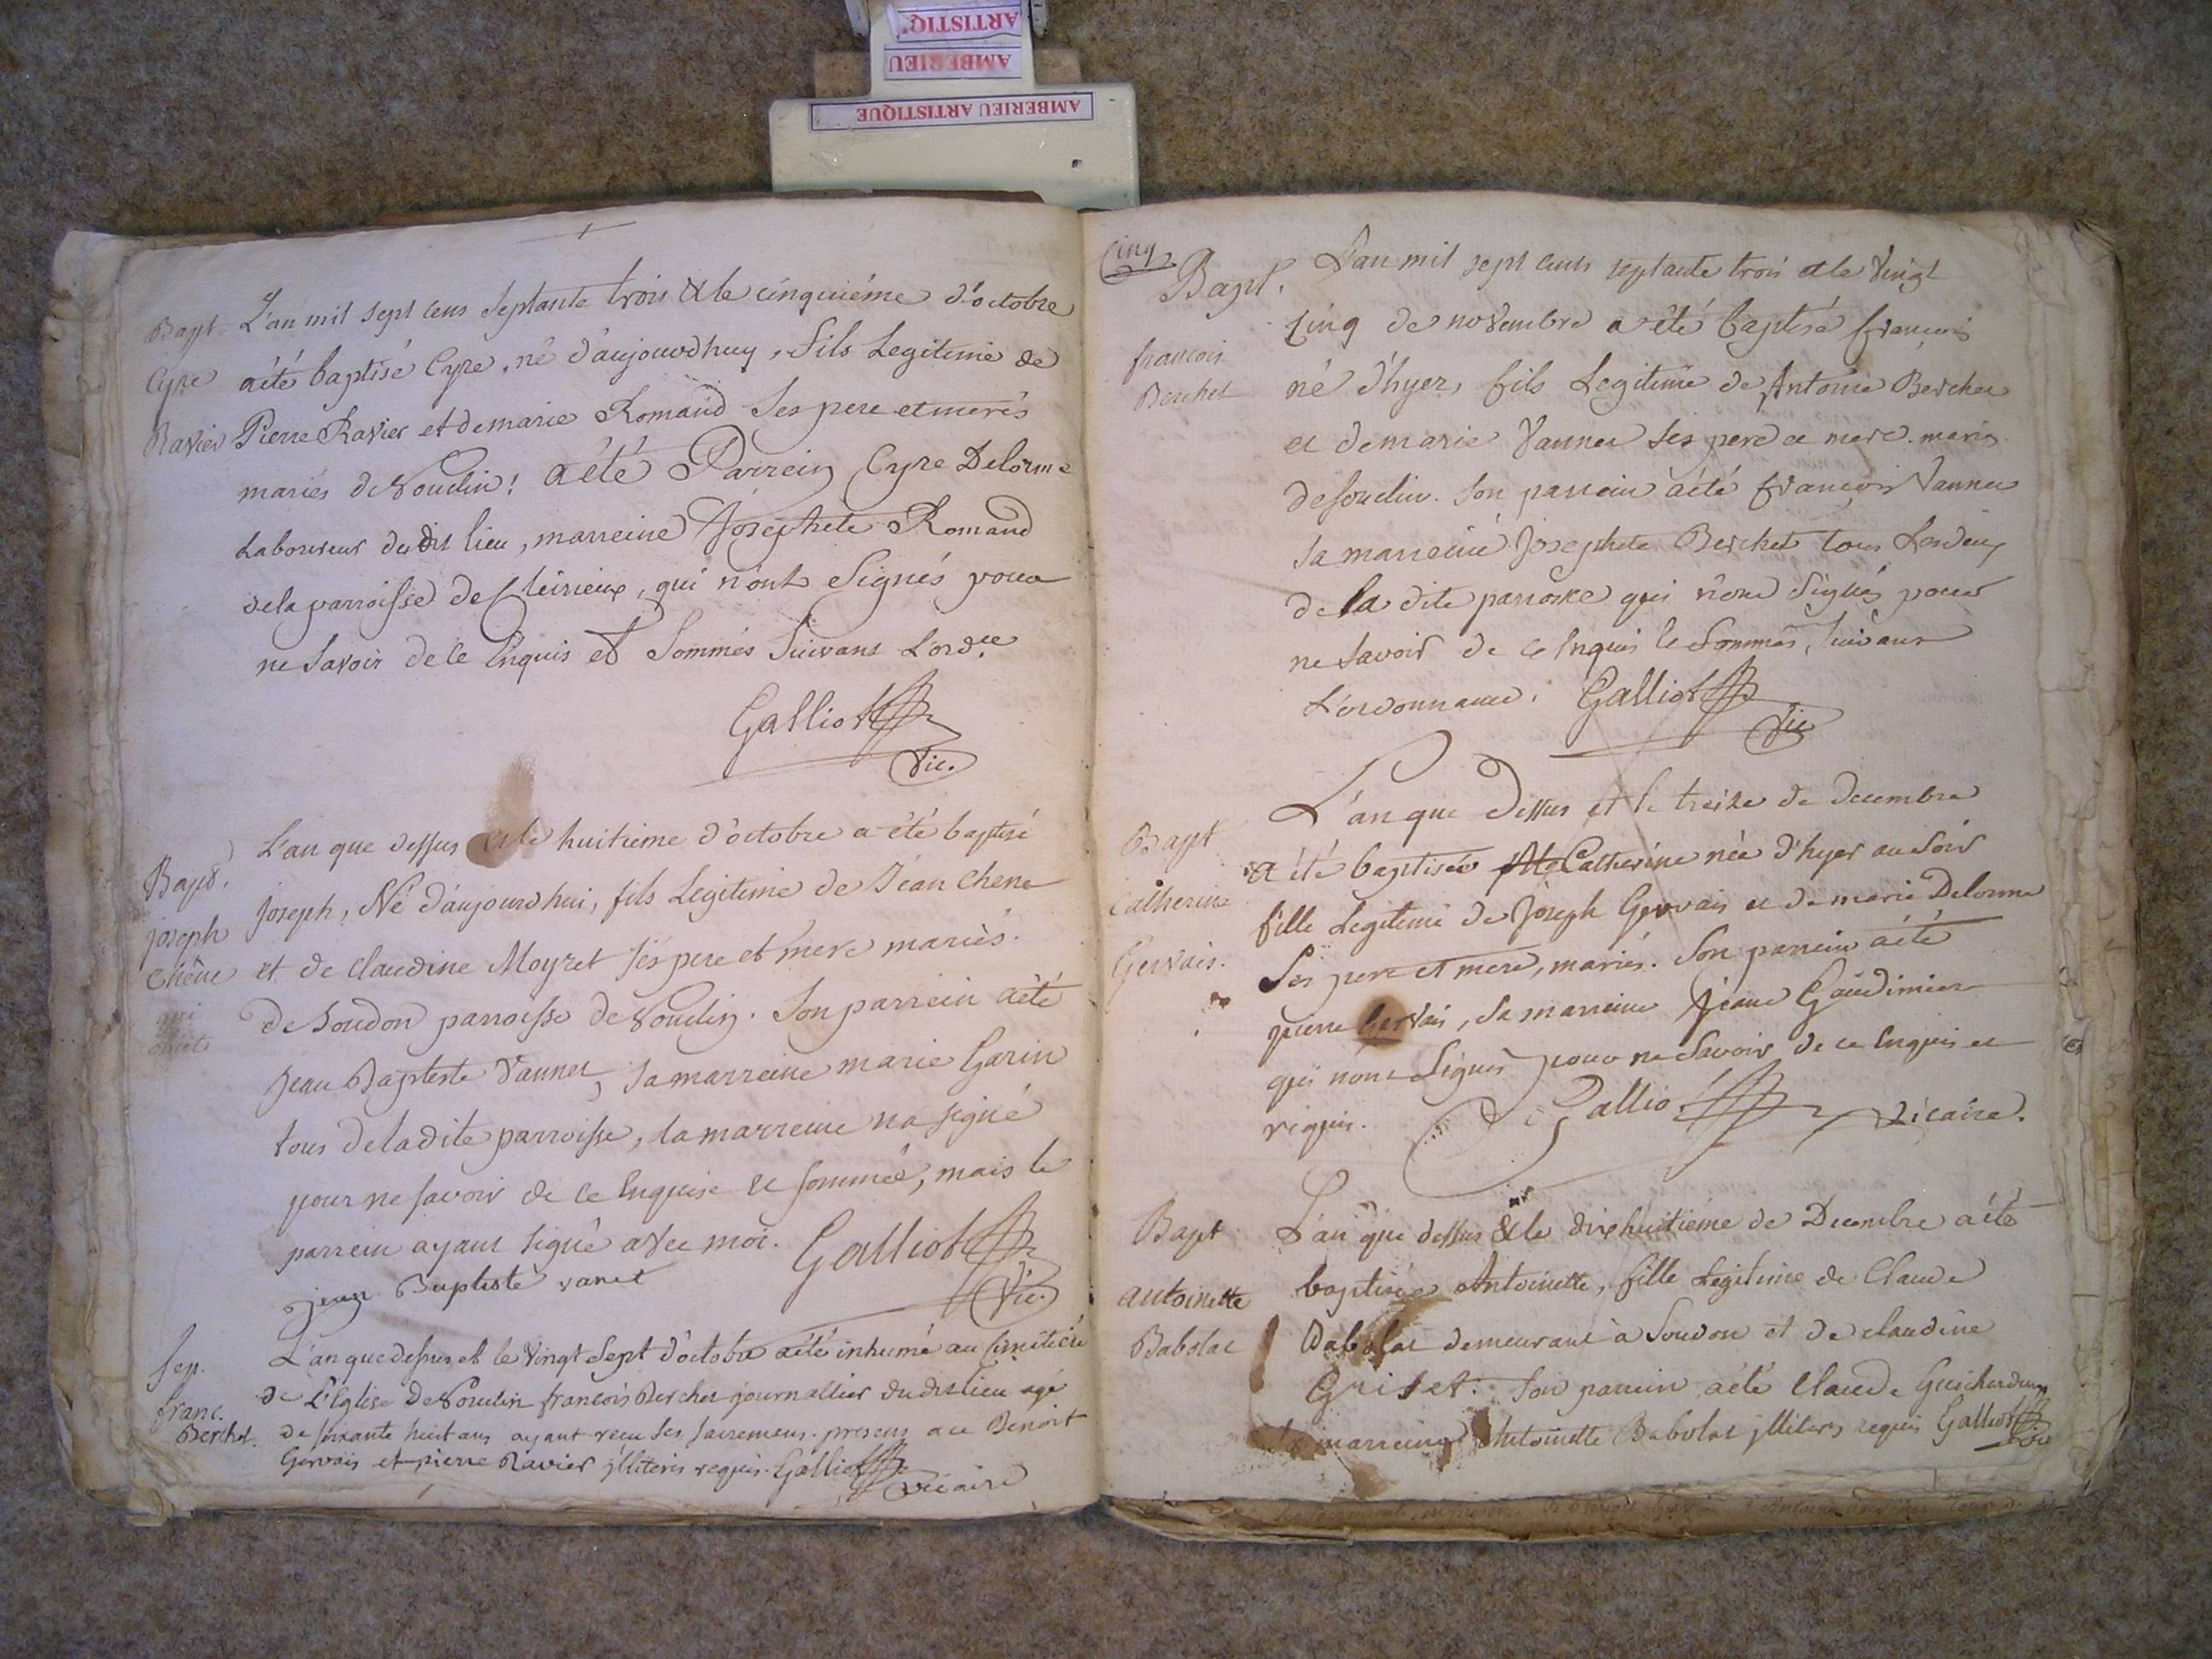 ARTISTIQ
AMBERIEU
AMBERIEU ARTISTIQUE
Bapt
Cyre
Ravier
L'an mil sept cens septante trois & le cinquiéme d'octobre
a été baptisé Cyre, né d'aujourdhuy, fils Legitime de
Pierre Ravier et de marie Romand ses pere et meres
mariés de Soudin! a été Parrein Cyre Delorme
Laboureur du dit lieu, marreine Josephete Romand
de la parroisse de, qui n'ont Signés pour
ne Savoir de ce Enquis et Sommés Suivans L'ord.ce
Galliot
Vic.
Bapt.
joseph
Chêne
L'an que dessus & le huitieme d'octobre a été baptisé
Joseph, Né d'aujourdhui, fils Legitime de Jean Chene
et de Claudine Moyret ses pere et mere mariés.
de Soudon parroisse de Soudin. Son parrein a été
Jean Baptiste Vannet, sa marreine marie Garin
tous de la dite parroisse, la marreine na signé
pour ne savoir de ce Enquise & sommée, mais le
parrein ayant signé avec moi. Galliot
Vic.
jean Baptiste vanet
Sep.
franc.
Berchet.
L'an que dessus et le Vingt Sept d'octobre a été inhumé au Cimétiére
de L'Eglise de Soudin francois Berchet journallier du dit lieu agé
de soixante huit ans ayant recu ses sacremens. presens Benoit
Gervais et pierre Ravier jlliteris requis. Galliot
vicaire
Cinq
Bapt.
francois
Berchet
L'an mil sept cens septante trois & le Vingt
Cinq de novembre a été baptisé francois
né d'hyer, fils Legitime de Antoine Berchet
et de marie Vannet ses pere et mere. mariés
de Soudin. Son parrein a été francois Vannet
Sa marreine Josephete Berchet tous Les deux
de la dite parroisse qui n'ont Signés pour
ne Savoir de ce Enquis & Sommés, suivant
L'ordonnance. Galliot
Vic
Bapt
Catherine
Gervais.
L'an que dessus et le treize de decembre
a été baptisée Catherine née d'hyer au Soir
fille Legitime de Joseph Gervais et de marie Delorme
Ses pere et mere, mariés. Son parrein a été
pierre Gervais, Sa marreine Jeane Gaudimier
qui n'ont Signés pour ne Savoir de ce Enquis et
requis. Galliot vicaire.
Bapt
antoinette
Babolat
L'an que dessus & le dixhuitiéme de Decembre a été
baptisée Antoinette, fille Legitime de Claude
Babolat demeurant à Soudon et de claudine
Griset. Son parrein a été Claude Guichardon
marreine Antoinette Babolat jlliters requis Galliot
Vic